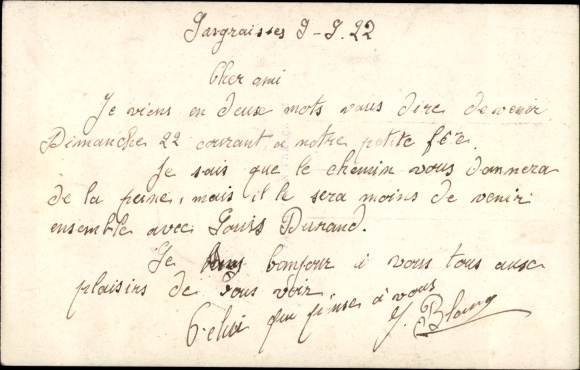 9-9.22
Cher ami
Je viens en deux mots vous dire de venir
Dimanche 22 courant a notre petite fête
Je sais que le chemin vous donnera
de la peine, mais il le sera moins de venir
ensemble avec Louis Durand.
Je bonjour à vous tous aux
plaisirs de vous voir,
Celui qui pense à vous